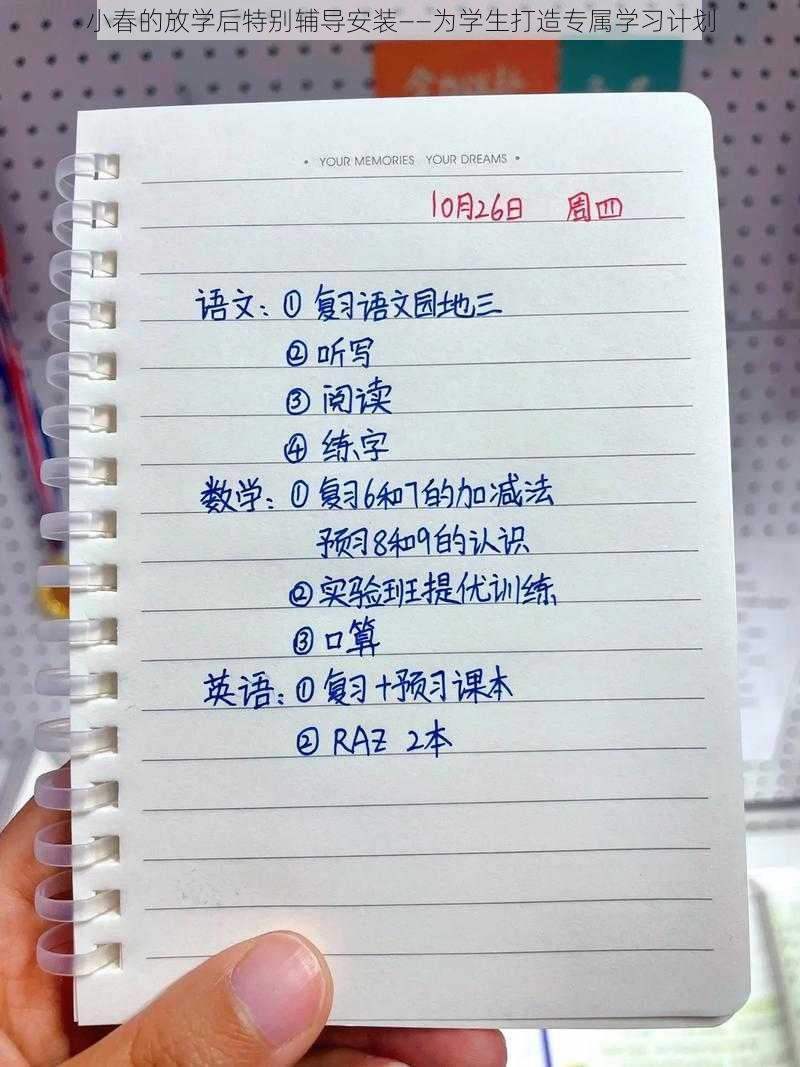 小春的放学后特别辅导安装——为学生打造专属学习计划
• YOUR MEMORIES YOUR DREAMS •
10月26日 周四
语文：① 复习语文园地三
② 听写
③ 阅读
④ 练字
数学：① 复习6和7的加减法
预习8和9的认识
② 实验班提优训练
③ 口算
英语：① 复习+预习课本
② RAZ 2本